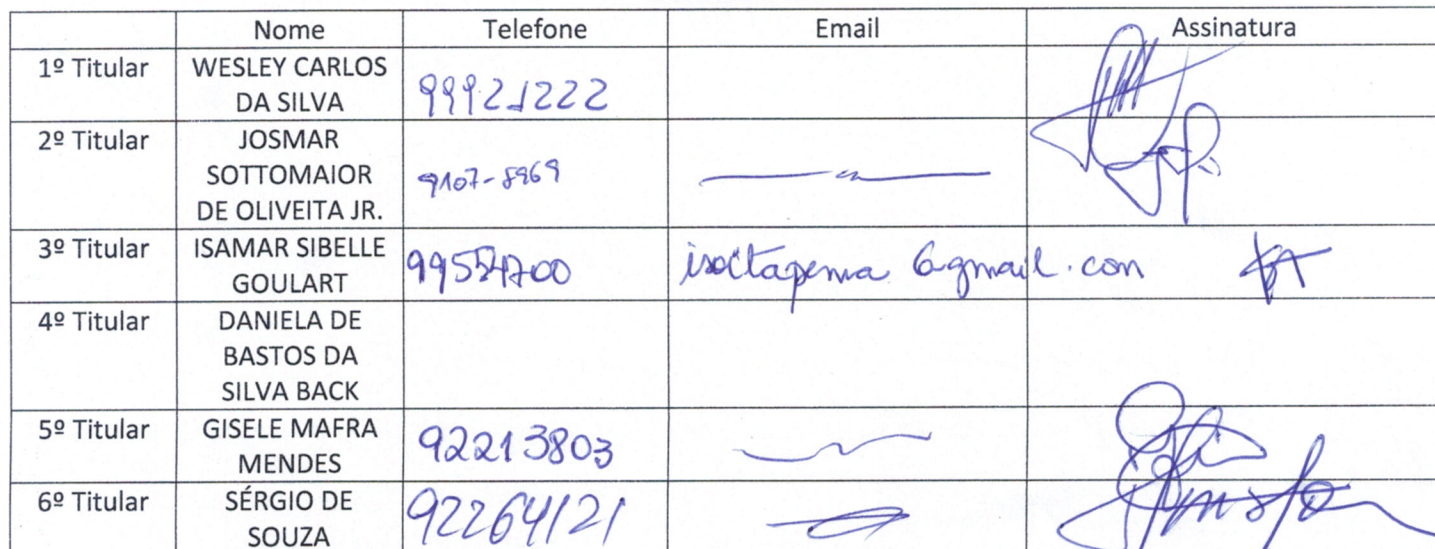 Nome Telefone Email Assinatura
1º Titular WESLEY CARLOS DA SILVA 99921222
2º Titular JOSMAR SOTTOMAIOR DE OLIVEITA JR. 9107-8969
3º Titular ISAMAR SIBELLE GOULART
4º Titular DANIELA DE BASTOS DA SILVA BACK
5º Titular GISELE MAFRA MENDES 92213803
6º Titular SÉRGIO DE SOUZA 92264121